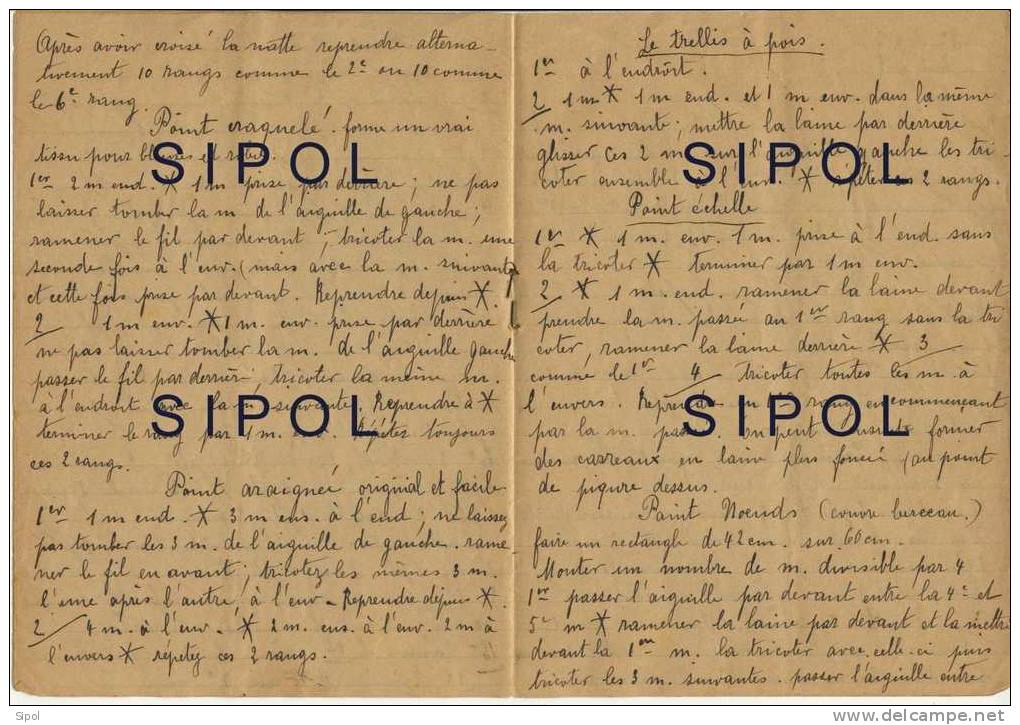 Après avoir croisé la natte reprendre alterna-
tivement 10 rangs comme le 2e ou 10 comme
le 6e rang.
Point craquelé. forme un vrai
tissu pour blouses et robes.
1er 2 m end. * 1 m prise par derrière ; ne pas
laisser tomber la m de l'aiguille de gauche ;
ramener le fil par devant, tricoter la m. une
seconde fois à l'env. (mais avec la m. suivante
et cette fois prise par devant. Reprendre depuis *.
2/ 1 m env. * 1 m. env. prise par derrière
ne pas laisser tomber la m. de l'aiguille gauche
passer le fil par derrière, tricoter la même m.
à l'endroit avec la m suivante. Reprendre à *
terminer le rang par 1 m. Répétez toujours
ces 2 rangs.
Point araignée original et facile
1er 1 m end. * 3 m ens. à l'end ; ne laissez
pas tomber les 3 m. de l'aiguille de gauche. rame
ner le fil en avant ; tricotez les mêmes 3 m.
l'une après l'autre, à l'env - Reprendre depuis *.
2/ 4 m. à l'env. * 2 m. ens. à l'env. 2 m à
l'envers * répétez ces 2 rangs.
Le trellis à pois.
1er à l'endroit.
2/ 1 m * 1 m end. et 1 m env. dans la même
m. suivante ; mettre la laine par derrière
glisser ces 2 m. sur l'aiguille gauche les tri-
coter ensemble à l'env. * répéter les 2 rangs.
Point échelle
1er * 1 m. env. 1 m. prise à l'end. sans
la tricoter * terminer par 1 m env.
2/ * 1 m. end. ramener la laine devant
prendre la m. passée au 1er rang sans la tri
coter, ramener la laine derrière * 3/
comme le 1er 4/ tricoter toutes les m. à
l'envers. Reprendre au rang en commençant
par la m. On peut ensuite former
des carreaux en laine plus foncée (au point
de piqure dessus.
Point Noeuds (couvre berceau.)
faire un rectangle de 42 cm. sur 60 cm.
Monter un nombre de m. divisible par 4
1er passer l'aiguille par devant entre la 4e et
5e m * ramener la laine par devant et la mettre
devant la 1ere m. la tricoter avec celle-ci puis
tricoter les 3 m. suivantes. passer l'aiguille entre
SIPOL
SIPOL
SIPOL
SIPOL
Sipol
www.delcampe.net